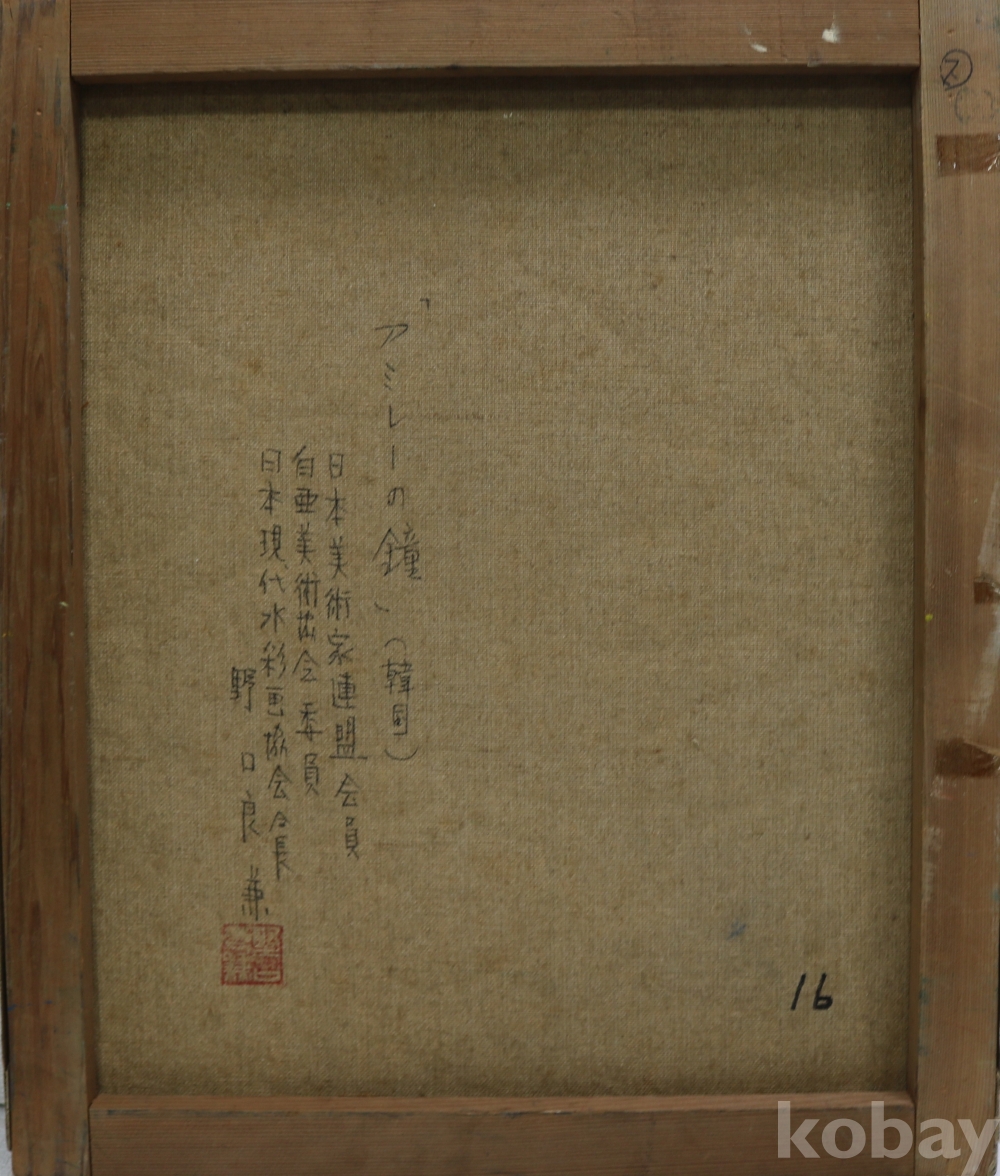 「アミレーの鐘」(韓国)
日本美術家連盟会員
白亜美術協会委員
日本現代水彩画協会会長
野口良兼
16
kobay